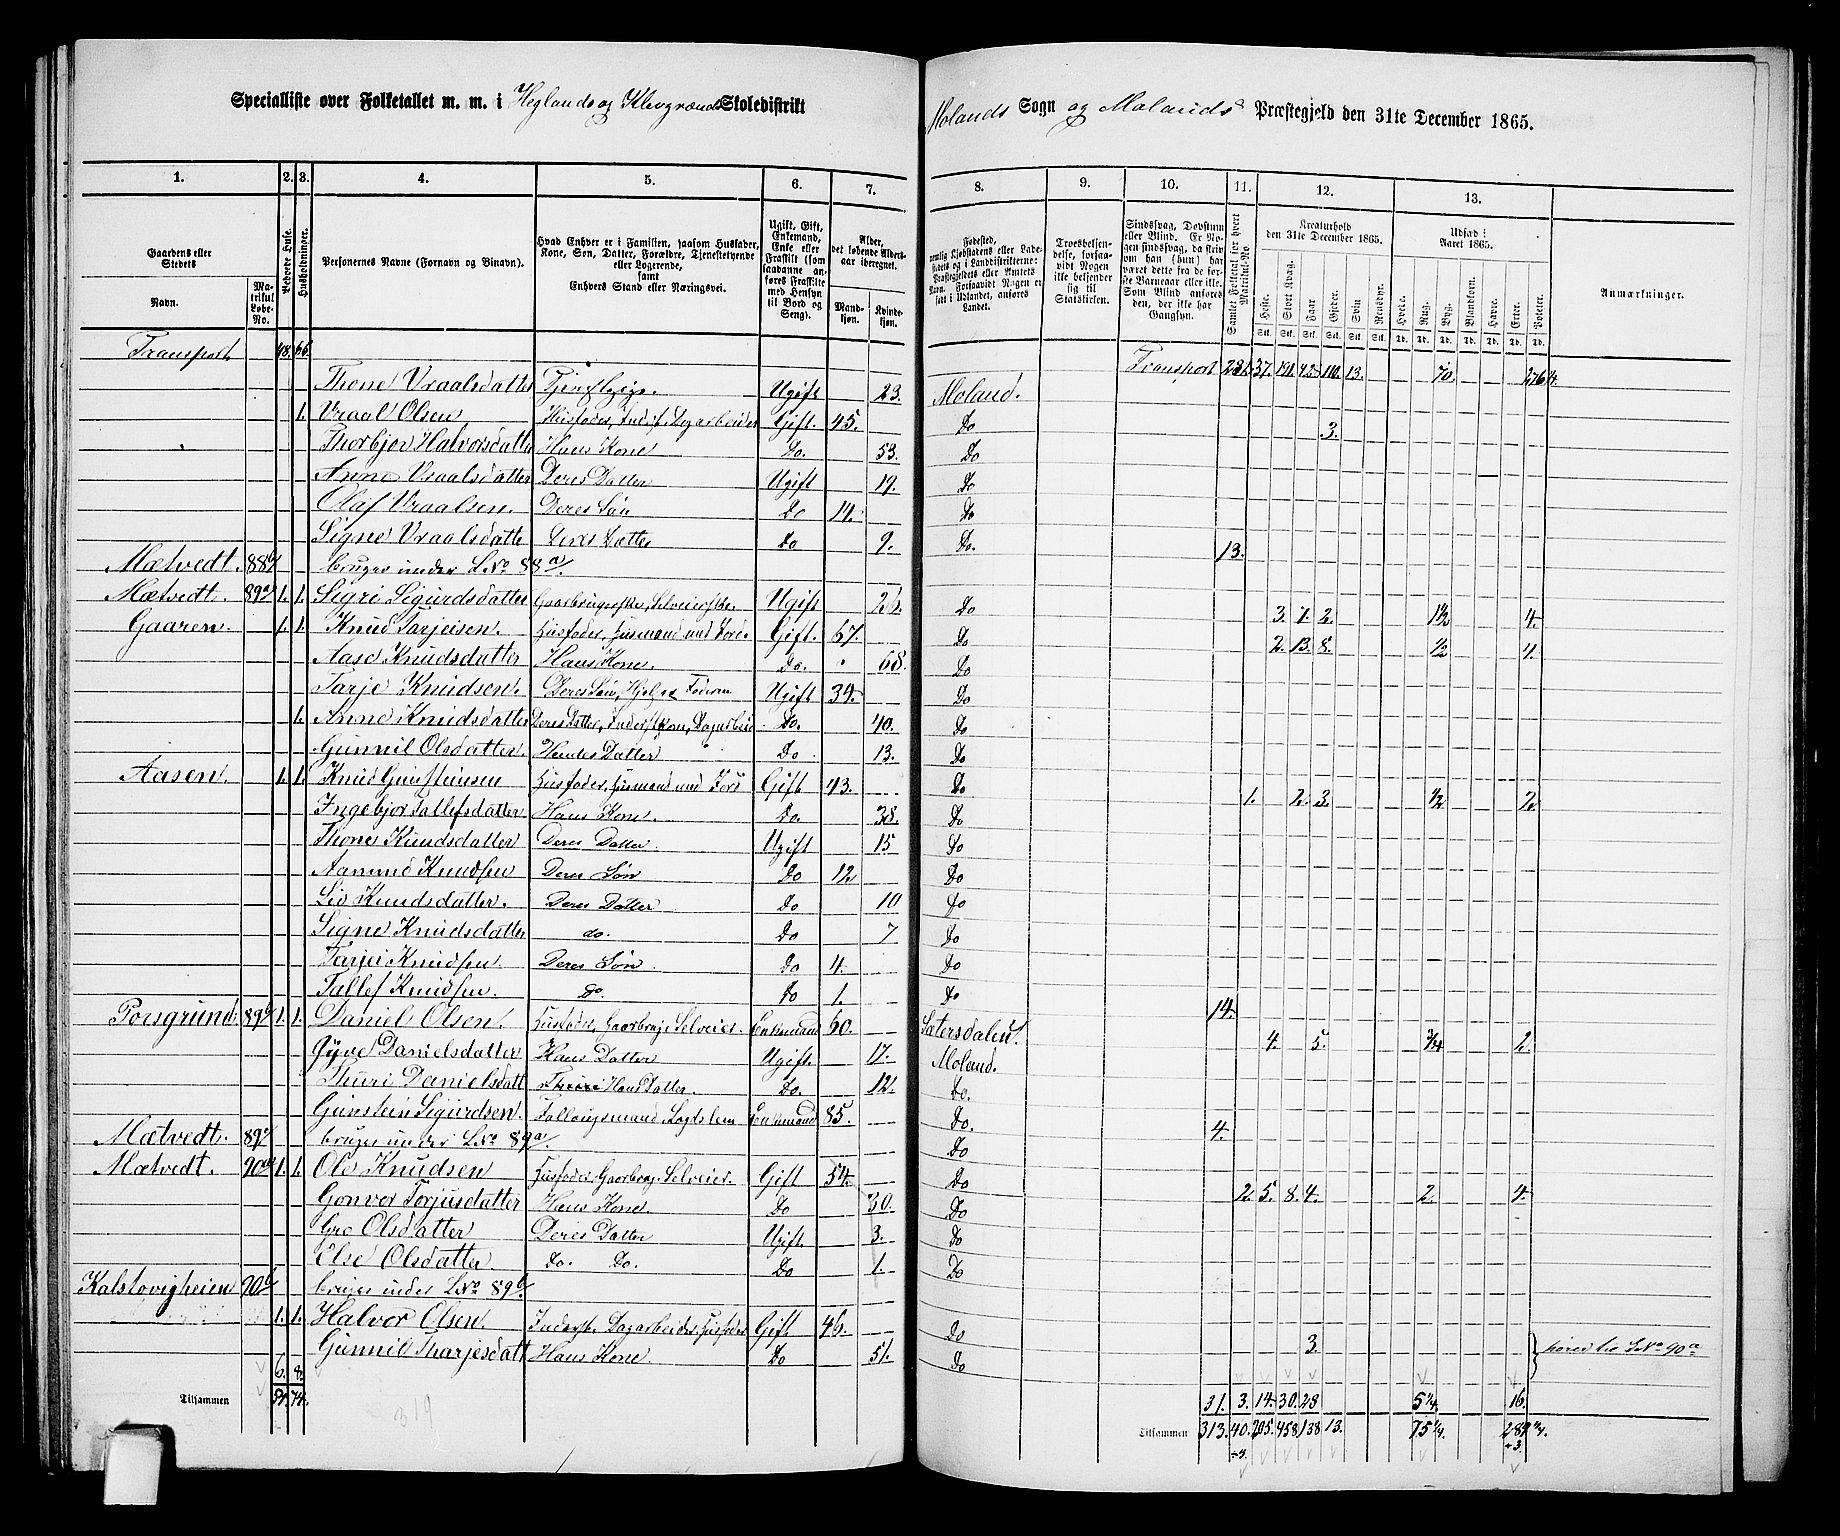 Specialliste over Folketallet m. m. i Heglands og Klevgrænds Skoledistrikt
Molands Sogn og Molands Præstegjeld den 31te December 1865.
1. 2. 3. 4. 5. 6. 7.
8. 9. 10. 11. 12. 13.
Gaardens eller Stedets Navn. Matrikul Løbe-No. Beboede Huse. Husholdninger. Personernes Navne (Fornavn og Binavn). Hvad Enhver er i Familien, saasom Husfader, Kone, Søn, Datter, Forældre, Tjenestetyende eller Logerende, samt Enhvers Stand eller Næringsvei. Ugift, Gift, Enkemand, Enke eller Fraskilt (som saadanne anføres Fraskilte med Hensyn til Bord og Seng). Alder, det løbende Aldersaar iberegnet. Mandkjøn. Kvindekjøn.
Troesbekjendelse, forsaavidt Nogen ikke bekjender sig til Statskirken. Kreaturhold den 31te December 1865. Heste. Stort Kvæg. Faar. Gjeder. Svin. Rensdyr. Udsæd i Aaret 1865. Hvede. Rug. Byg. Blandkorn. Havre. Erter. Poteter. Anmærkninger.
Transport 48. 66. Transport 281. 37. 13. 70.
Thone Vraalsdatter Ugift 23. Moland.
1. Vraal Olsen Husfader, Inderst, Dagarbeider Gift. 45. Do 3.
Thorbjør Halvorsdatter Hans Kone Do. 53. Do
Anne Vraalsdatter Deres Datter Ugift 19. Do
Olaf Vraalsen. Deres Søn Do 14. Do
Signe Vraalsdatter Deres Datter Do 9. Do. 13.
Mætvedt. 88b bruges under LNo 88a.
Mætvedt. 89a 1. 1. Sigri Sigurdsdatter Gaardbrugerske, Selveierske Ugift 26. Do 3. 7. 2. 1½ 4.
Gaaren. 1. 1. Knud Tarjeisen. Husfader, Husmand med Jord Gift. 67. Do 2. 13. 8. ½ 4.
Aase Knudsdatter Hans Kone. Do. 68. Do
Tarje Knudsen. Deres Søn, Hjelper Faderen Ugift 34. Do
1. Anne Knudsdatter Deres Datter, Inderst Do. 40. Do
Gunnil Olsdatter. Hendes Datter Do 13. Do
Aasen. 1. 1. Knud Gunsteinsen Husfader, Husmand med Jord Gift 43. Do 1. 2. 3. ½ 2.
Ingebjør Tallefsdatter Hans Kone. Do. 38. Do
Thone Knudsdatter Deres Datter. Ugift 15 Do
Aamund Knudsen Deres Søn Do 12 Do
Liv Knudsdatter. Deres Datter Do 10 Do
Signe Knudsdatter do. Do 7 Do
Tarjei Knudsen Deres Søn. Do 4. Do
Tallef Knudsen. Do. Do 1. Do 14.
Porsgrund. 89b 1. 1. Daniel Olsen. Husfader, Gaardbruger, Selveier. Enkemand 60. Sætersdalen. 4. 5. ¾ 2.
Gyve Danielsdatter Hans Datter Ugift. 17. Moland.
Thuri Danielsdatt Hans Datter Do. 12. Do.
Gunstein Sigurdsen. Enkemand 85. Do. 4.
Mætvedt. 89c bruges under LNo 89a. Do
Mætvedt. 90a 1. 1. Ole Knudsen Husfader, Gaardbrug. Selveier. Gift 54. Do 2. 5. 8. 4. 2. 4.
Gonvor Torjusdatter Hans Kone Do 30. Do
Gro Olsdatter Deres Datter Ugift. 3. Do
Else Olsdatter Do. Do. Do 1. Do
90b bruges under LNo 89b.
1. 1. Halvor Olsen. Inderst, Dagarbeider, Husfader Gift 46. Do 3.
Gunnil Tharjesdatt Hans Kone. Do 51. Do hører til LNo 90a
6. 8.
Tilsammen 74.
319
31. 3. 14. 30. 28 5¼. 16.
Tilsammen 313. 40. 205. 458 138 13. 75¼.